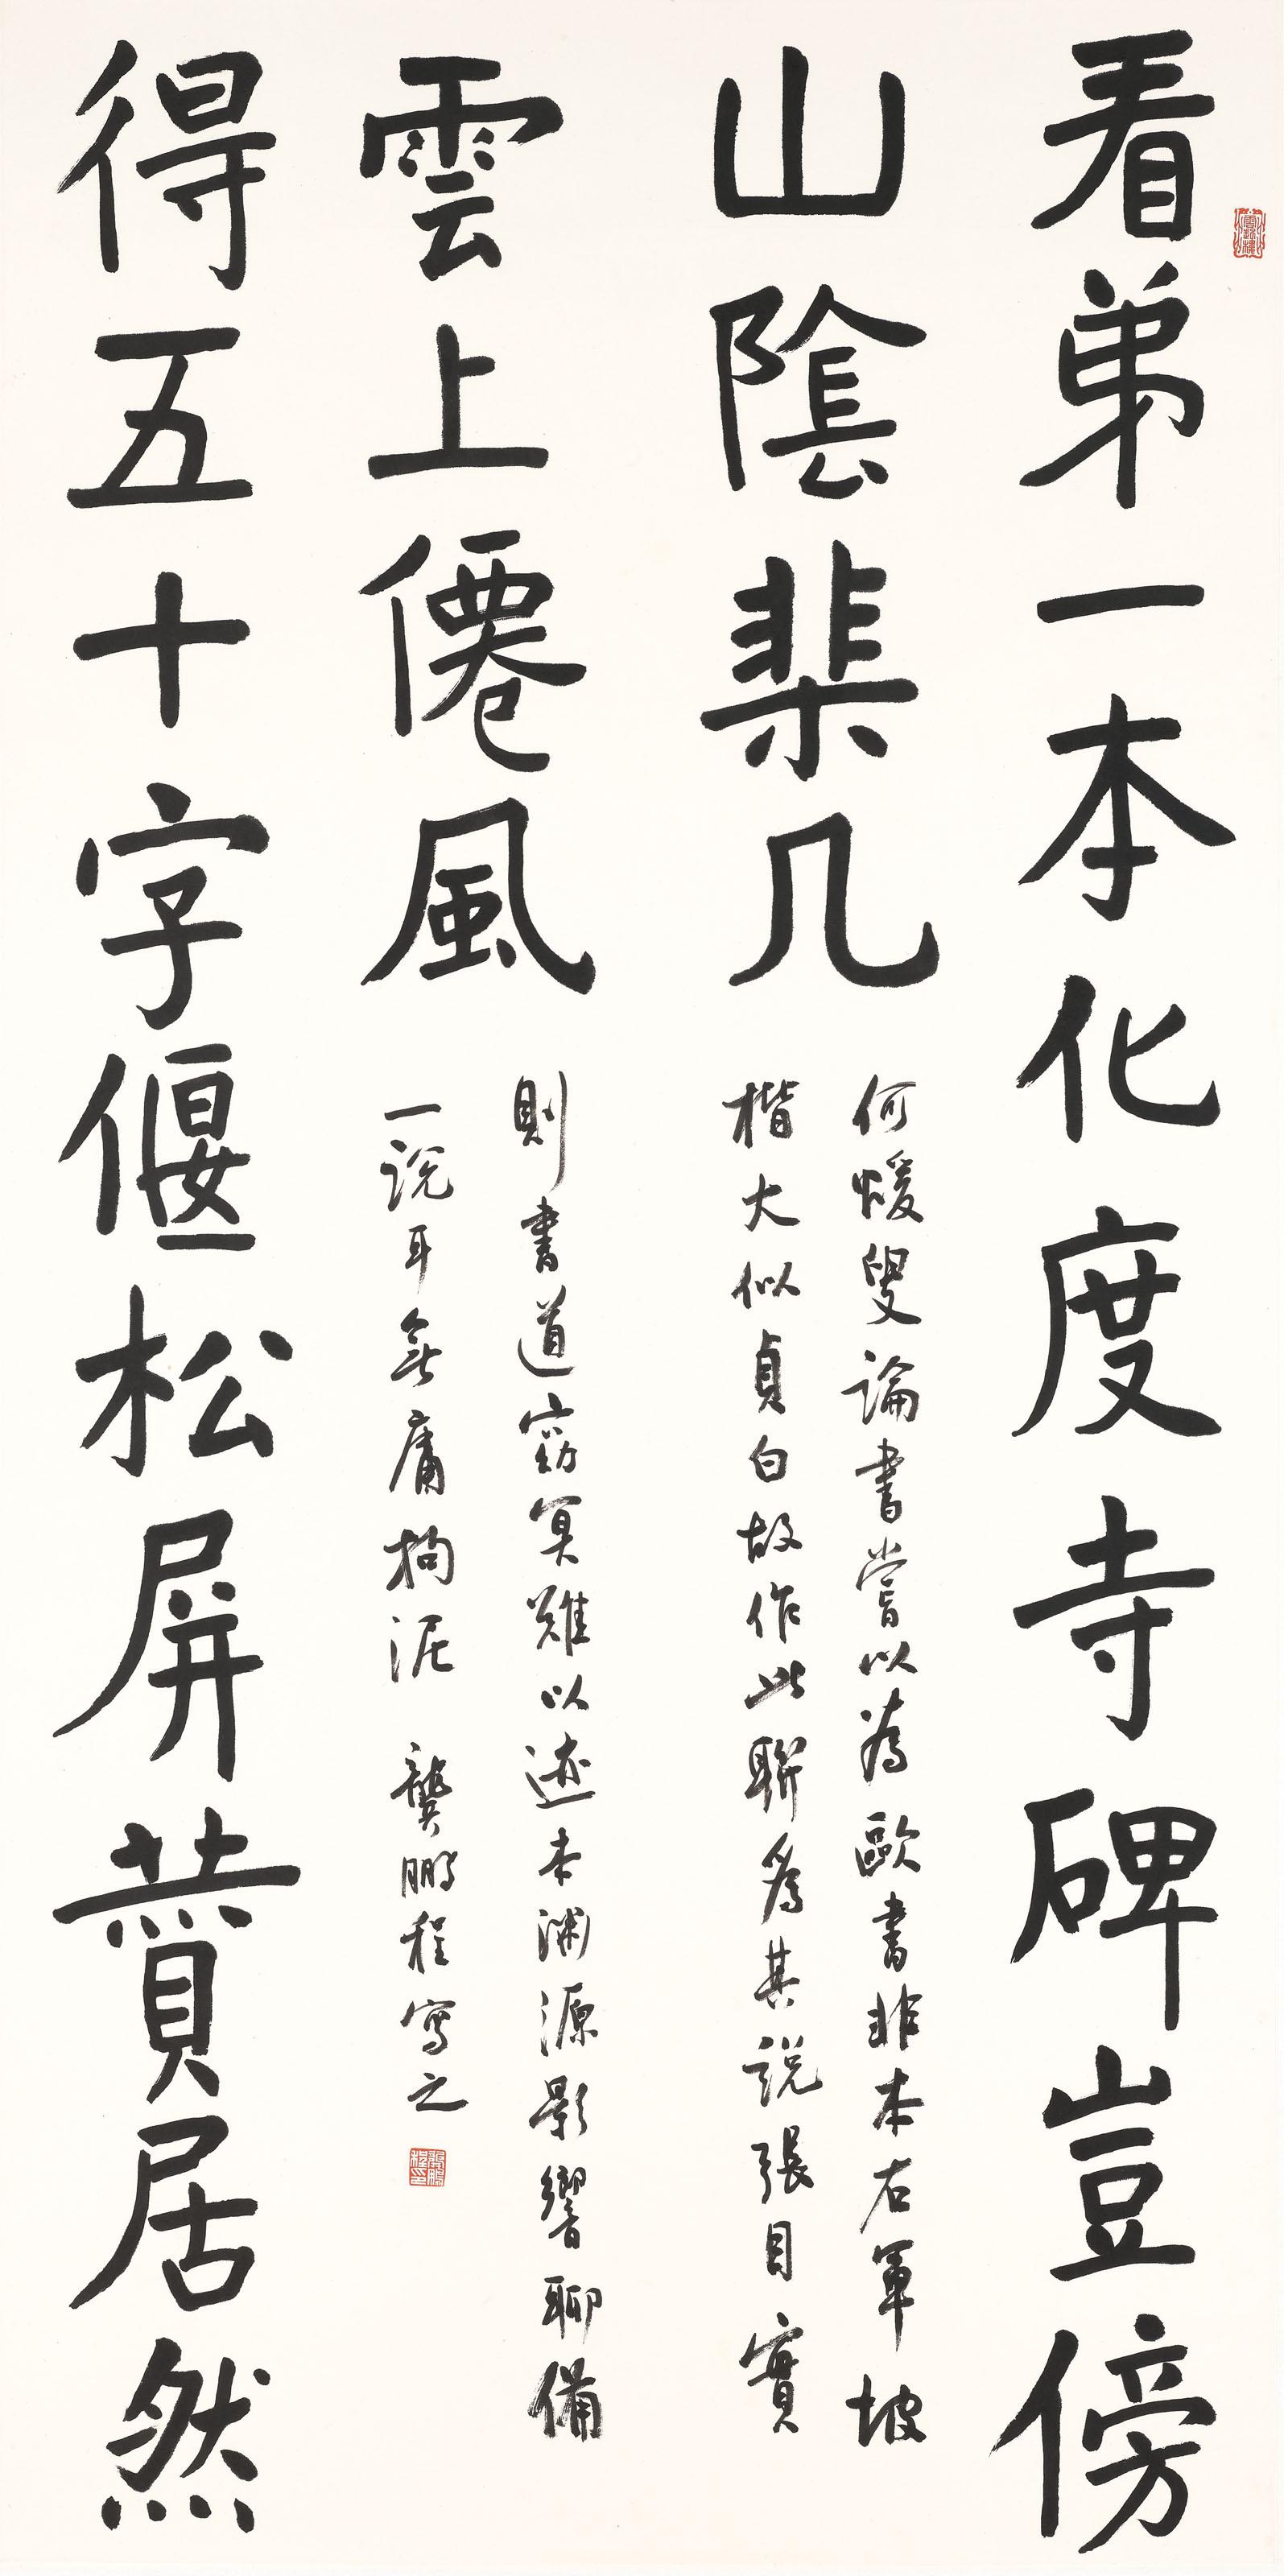 看弟一本化度寺碑豈傍
山陰棐几
得五十字偃松屏贊居然
雲上僊風
何煖叟論書嘗以為歐書非本右軍坡
楷大似貞白故作此聯為其說張目實
則書道窈冥難以迹本淵源影響聊備
一說耳無庸拘泥 龔鵬程寫之
龔鵬程印